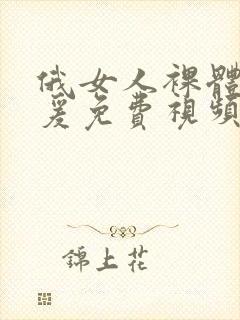 俄女人裸體
爰免費視頻
錦上花